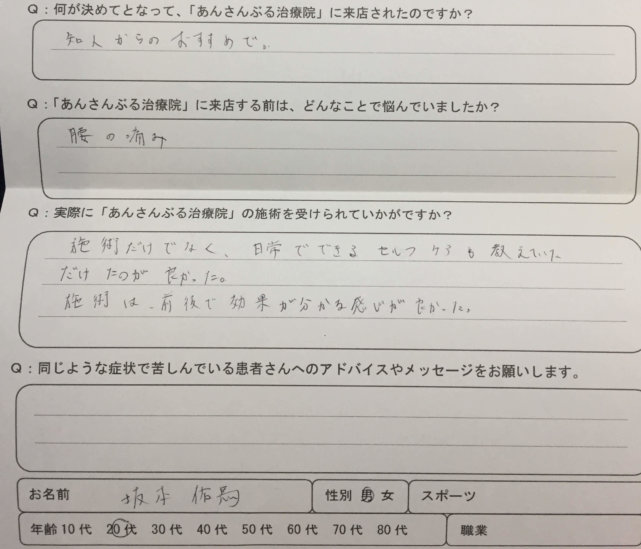 Q：何が決めてとなって、「あんさんぶる治療院」に来店されたのですか？
知人からのおすすめで。
Q：「あんさんぶる治療院」に来店する前は、どんなことで悩んでいましたか？
腰の痛み
Q：実際に「あんさんぶる治療院」の施術を受けられていかがですか？
施術だけでなく、日常でできるセルフケアも教えていた
だけたのが良かった。
施術は、前後で効果が分かる感じが良かった。
Q：同じような症状で苦しんでいる患者さんへのアドバイスやメッセージをお願いします。
お名前 坂本 佑 性別 男 女 スポーツ
年齢 10代 20代 30代 40代 50代 60代 70代 80代 職業